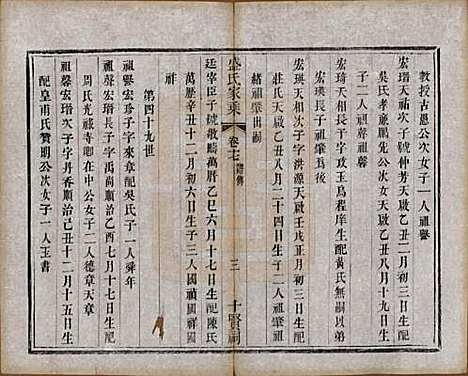 教授古愚公次女子一人祖譽
宏瑨天祐次子字仲芳天啟乙丑二月初三日生配
吳氏孝廉鵬先公次女天啟乙丑八月十九日生
子二人祖聲祖馨
宏琦天相長子字攻玉為程庠生配黃氏無嗣以弟
宏瑛長子祖徽為後
宏瑛天相次子字洪源天啟壬戌十月初三日生配
莊氏天啟乙丑八月二十四日生子二人祖肇祖
緒祖肇出嗣
廷宰臣子號敬疇萬厯乙巳六月十七日生配陳氏
萬厯辛丑十二月初六日生子三人國禎國祥國
祚
盛氏家乘
卷七
三
十賢祠
第四十九世
祖譽宏珍子字來章配吳氏子一人舜年
祖聲宏瑨長子字禹尚順治乙酉七月十七日生配
周氏光祿寺卿在中公女子二人德章天章
祖馨宏瑨次子字丹香順治己丑十二月十五日生
配皇甫氏贊明公次女子一人玉書